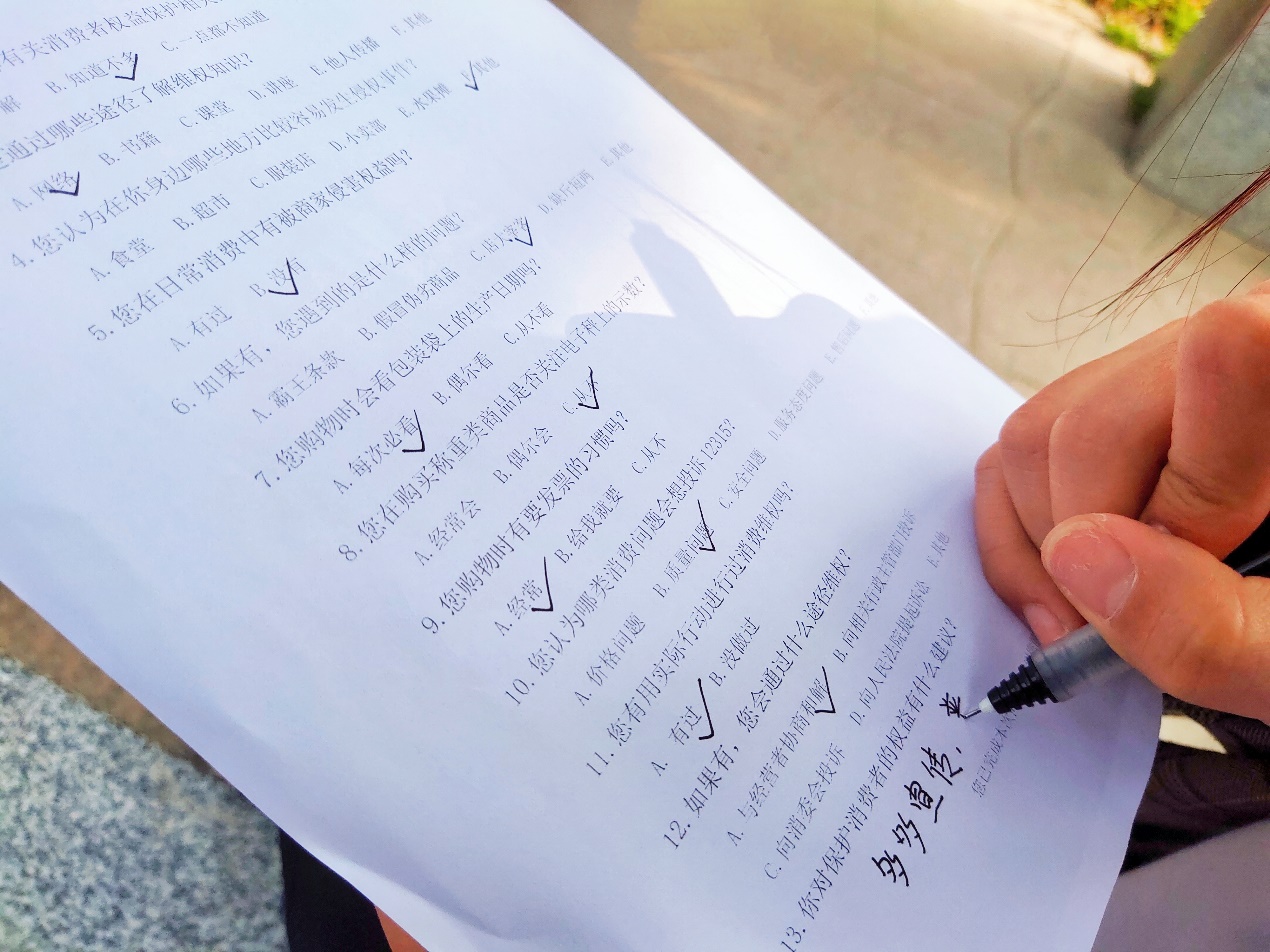 有关消费者权益保护相关
解 B. 知道不多 C. 一点都不知道
通过哪些途径了解维权知识?
A. 网络 B. 书籍 C. 课堂 D. 讲座 E. 他人传播 F. 其他
4. 您认为在你身边哪些地方比较容易发生侵权事件?
A. 食堂 B. 超市 C. 服装店 D. 小卖部 E. 水果摊 其他
5. 您在日常消费中有被商家侵害权益吗?
A. 有过 B. 没有
6. 如果有, 您遇到的是什么样的问题?
A. 霸王条款 B. 假冒伪劣商品 C. 店大欺客 D. 缺斤短两 E. 其他
7. 您购物时会看包装袋上的生产日期吗?
A. 每次必看 B. 偶尔看 C. 从不看
8. 您在购买称重类商品是否关注电子秤上的示数?
A. 经常会 B. 偶尔会 C. 从不
9. 您购物时有要发票的习惯吗?
A. 经常 B. 给我就要 C. 从不
10. 您认为哪类消费问题会想投诉 12315?
A. 价格问题 B. 质量问题 C. 安全问题 D. 服务态度问题 E. 售后问题
11. 您有用实际行动进行过消费维权吗?
A. 有过 B. 没做过
12. 如果有, 您会通过什么途径维权?
A. 与经营者协商和解 B. 向相关行政主管部门投诉
C. 向消委会投诉 D. 向人民法院提起诉讼 E. 其他
13. 你对保护消费者的权益有什么建议?
多多宣传,
您已完成本次